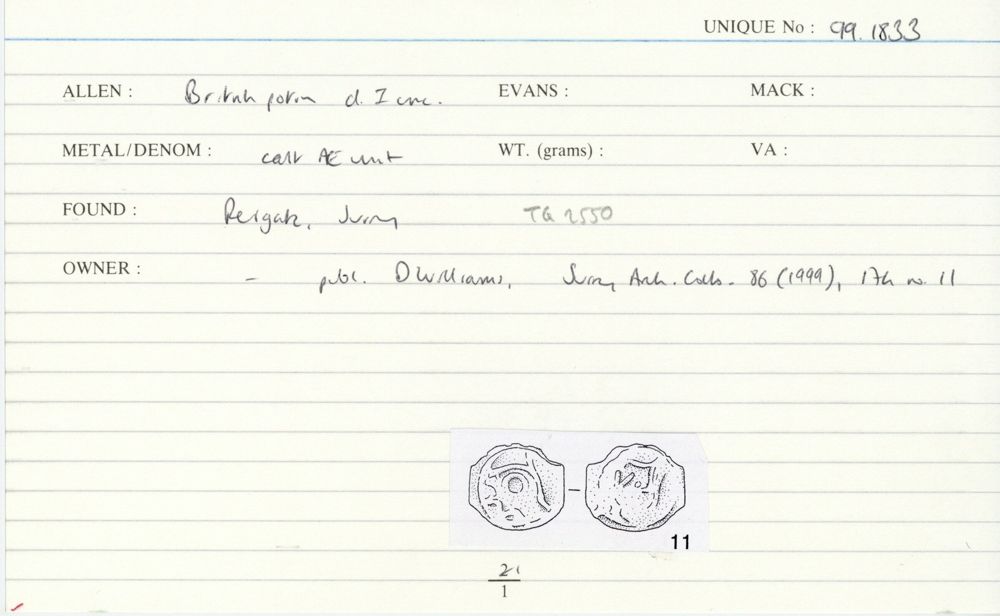 UNIQUE No : 99.1833
ALLEN : British potin cl. I unc. EVANS : MACK :
METAL/DENOM : cast AE unit WT. (grams) : VA :
FOUND : Reigate, Surrey TQ 2550
OWNER : – publ. D Williams, Surrey Arch. Colls. 86 (1999), 176 no. 11
11
2
1